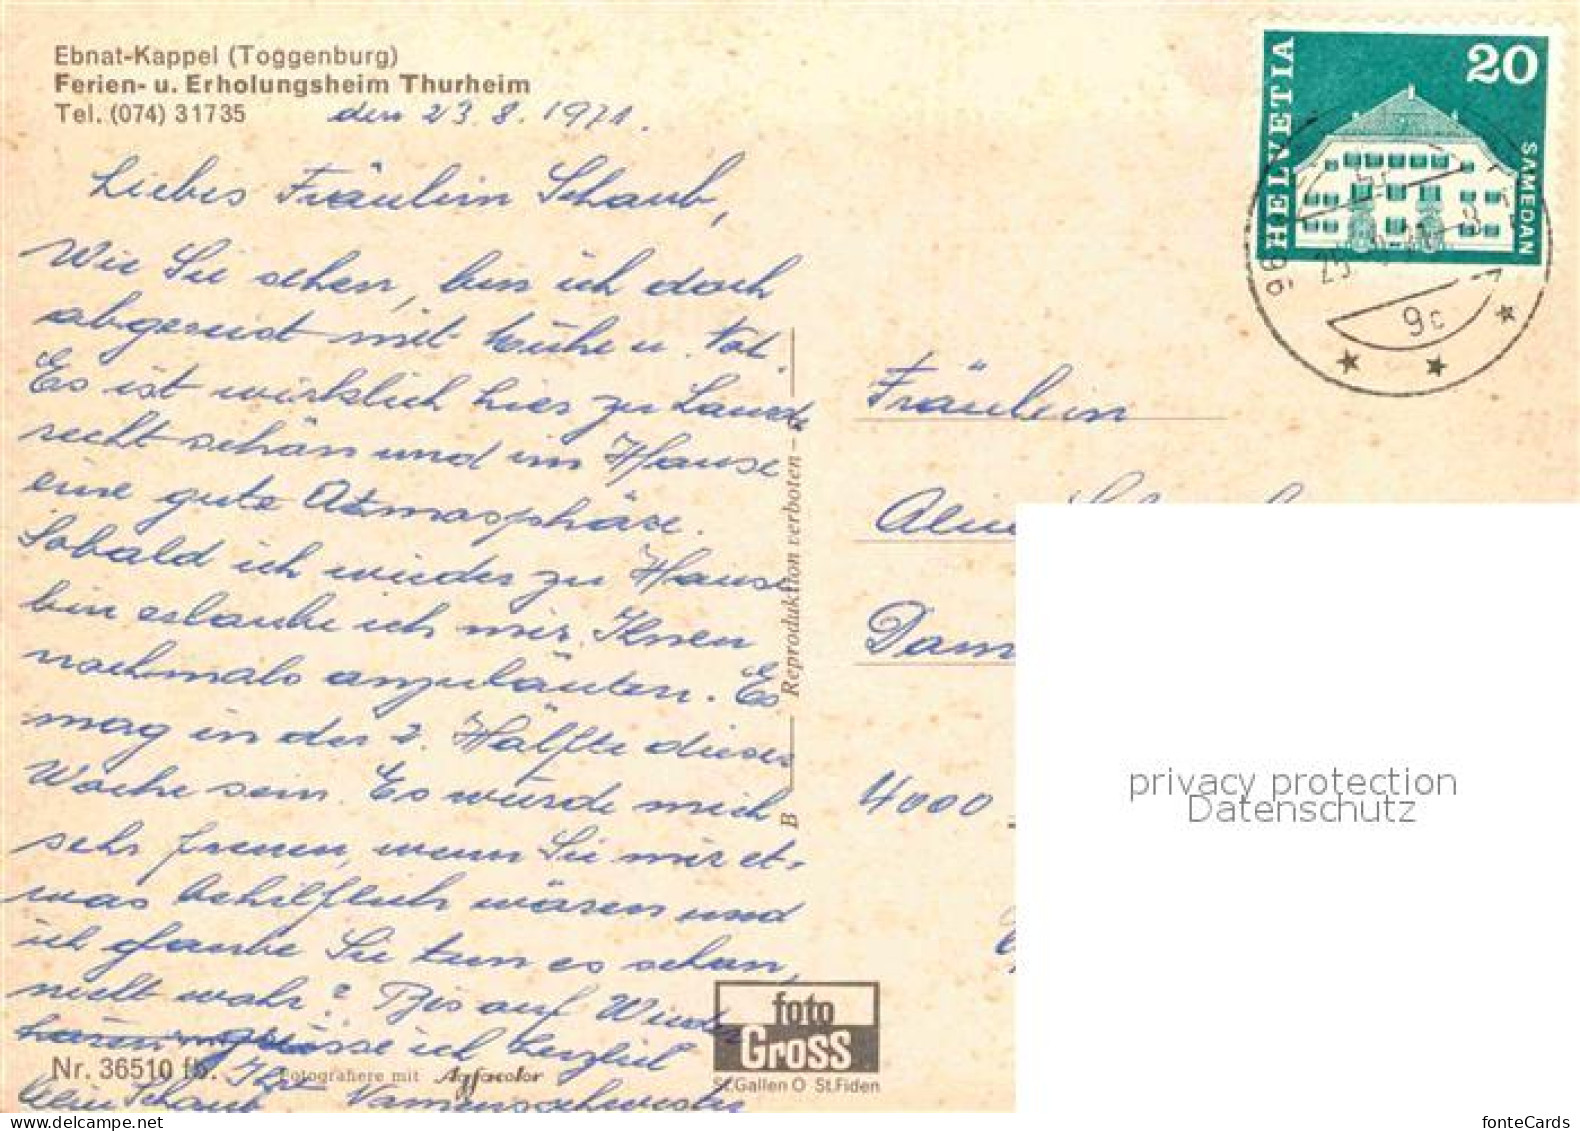 Ebnat-Kappel (Toggenburg)
Ferien- u. Erholungsheim Thurheim
Tel. (074) 31735
den 23. 8. 1971.
Liebes Fräulein Schaub,
Wie Sie sehen, bin ich doch
abgereist mit Mühe u. Not.
Es ist wirklich hier zu Lande
recht schön und im Hause
eine gute Atmosphäre.
Sobald ich wieder zu Hause
bin erlaube ich mir Ihnen
nochmals anzuläuten. Es
mag in der 2. Hälfte dieser
Woche sein. Es würde mich
sehr freuen, wenn Sie mir et-
was behilflich wären und
ich glaube Sie tun es schon,
nicht wahr? Bis auf Wieder
grüsse ich herzlich
Ihre
Schaub Namensschwester
HELVETIA
20
SAMEDAN
9c
Fräulein
4000
B
Reproduktion verboten
foto
Gross
St.Gallen O St.Fiden
Nr. 36510 fb.
Fotografiere mit Agfacolor
privacy protection
Datenschutz
fonteCards